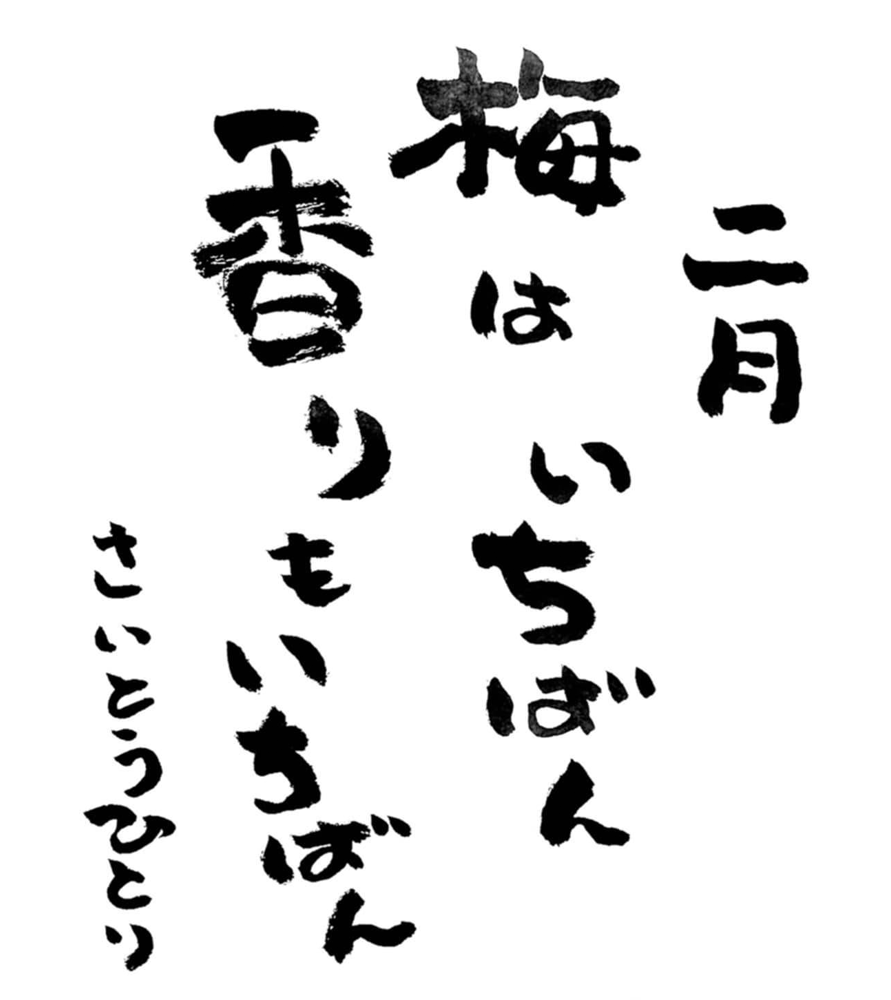 二月
梅はいちばん
香りもいちばん
さいとうひとり